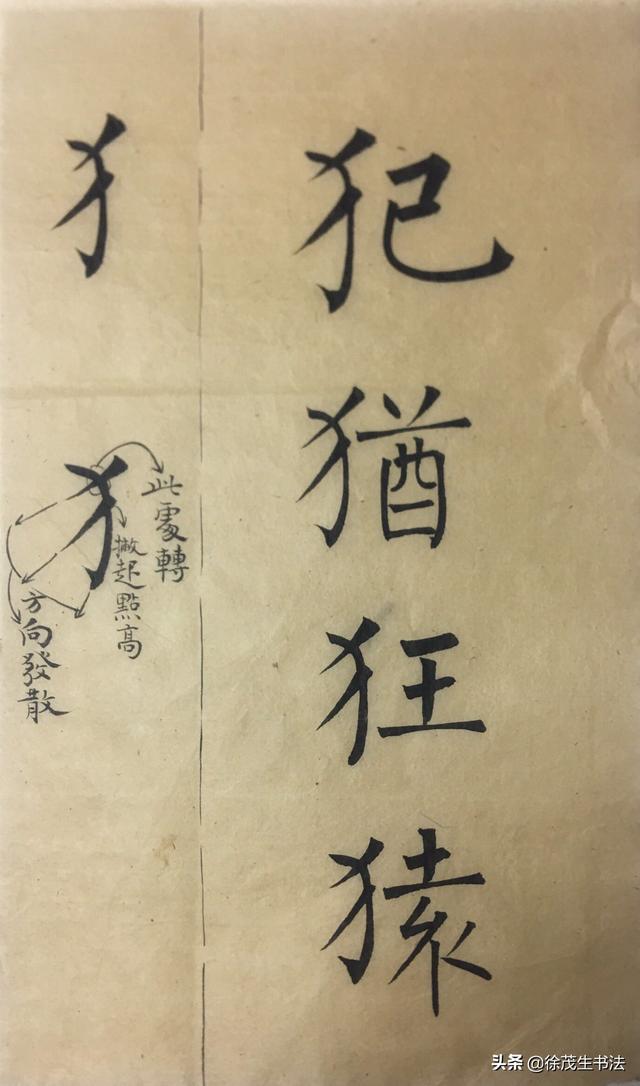 犯
猶
狂
猿
犭
犭
此處轉
撇起點高
方向發散
头条 @徐茂生书法